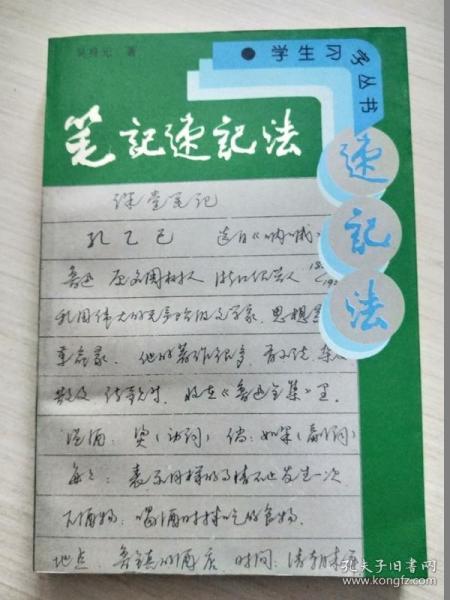 吴 元 著
学生习字丛书
笔記速記法
速記法
课堂笔记
孔乙己 选自《呐喊》
鲁迅 原名周树人 浙江绍兴人 18
19
我国伟大的无产阶级文学家、思想
革命家。他的著作很多,有小说、杂
散文、诗歌等,收在《鲁迅全集》里。
温酒: 烫(动词) 倘: 如果(副词)
每每: 表示同样的事情不止发生一次
下酒物: 喝酒时择吃的食物
地点: 鲁镇的酒店 时间: 清朝末
孔夫子旧书网